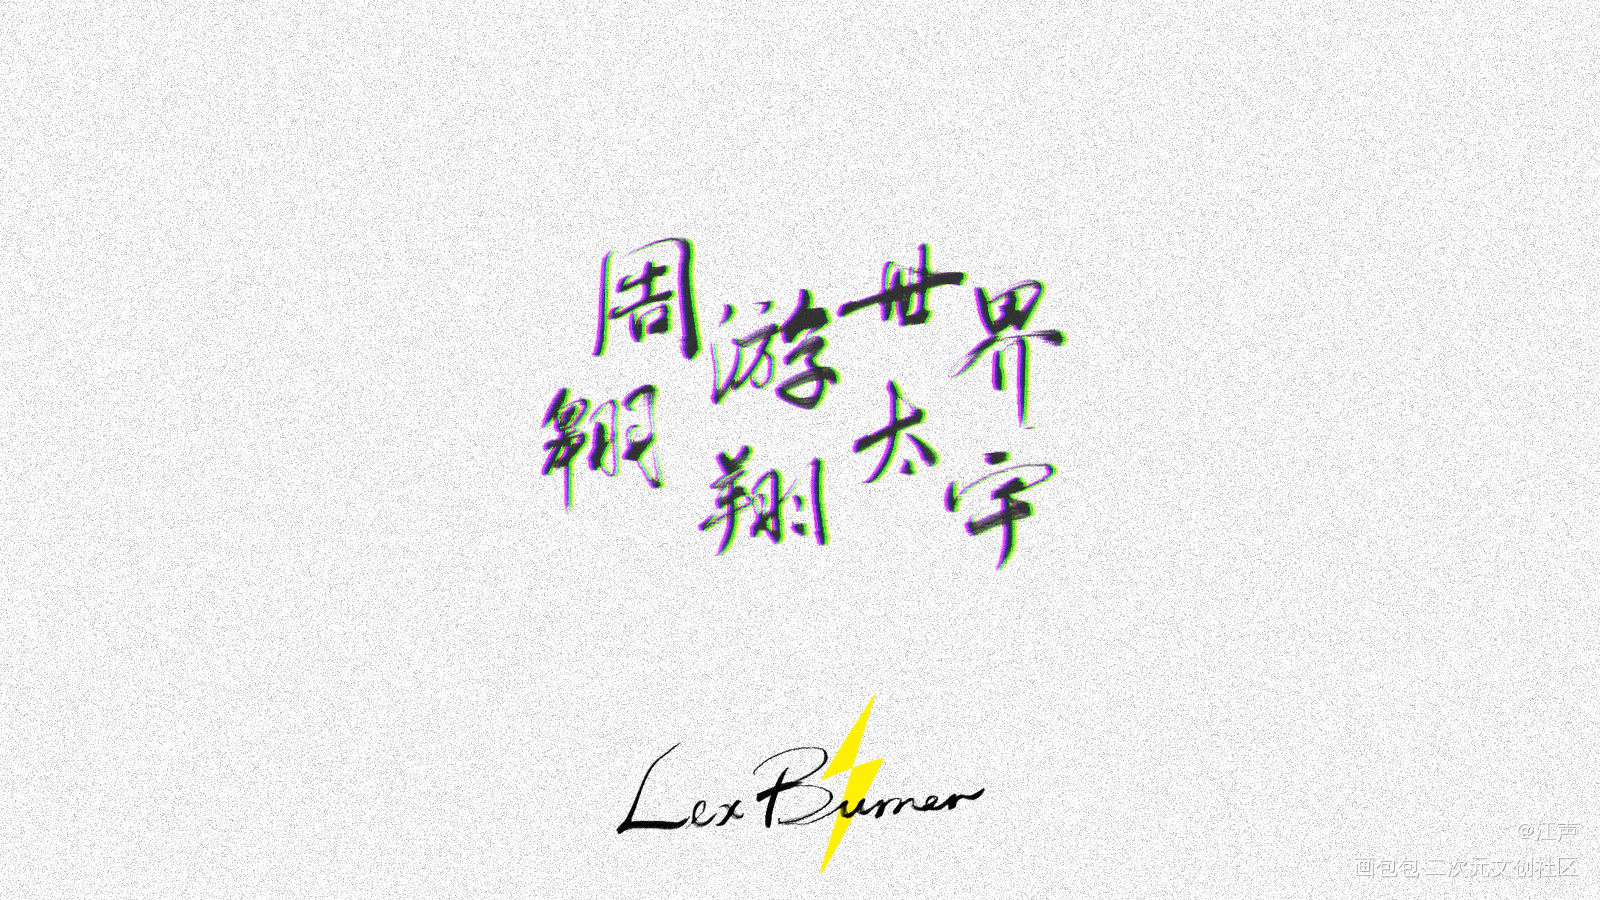 周游世界
翱翔太宇
Lex Burner
@江声
画包包·二次元文创社区